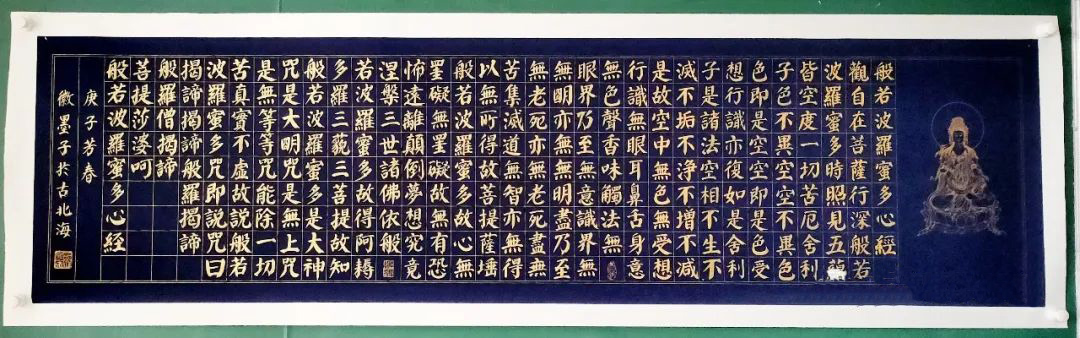 般若波羅蜜多心經
觀自在菩薩行深般若
波羅蜜多時照見五蘊
皆空度一切苦厄舍利
子色不異空空不異色
色即是空空即是色受
想行識亦復如是舍利
子是諸法空相不生不
滅不垢不淨不增不減
是故空中無色無受想
行識無眼耳鼻舌身意
無色聲香味觸法無
眼界乃至無意識界無
無明亦無無明盡乃至
無老死亦無老死盡無
苦集滅道無智亦無得
以無所得故菩提薩埵
般若波羅蜜多故心無
罣礙無罣礙故無有恐
怖遠離顛倒夢想究竟
涅槃三世諸佛依般
若波羅蜜多故得阿耨
多羅三藐三菩提故知
般若波羅蜜多是大神
咒是大明咒是無上咒
是無等等咒能除一切
苦真實不虛故説般若
波羅蜜多咒即説咒曰
揭諦揭諦般羅揭諦
般羅僧揭諦
菩提莎婆呵
般若波羅蜜多心經
庚子芳春
徽墨子於古北海